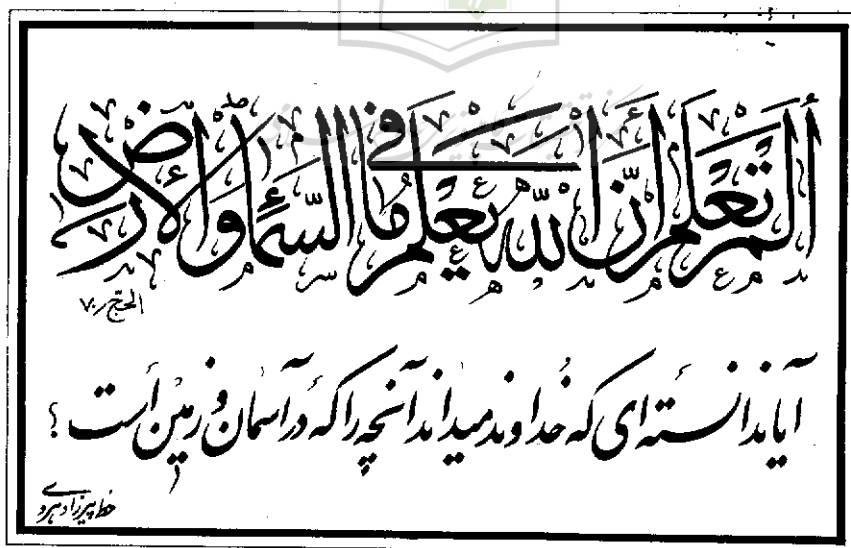 أَلَمْ تَعْلَمْ أَنَّ اللّٰهَ يَعْلَمُ مَا فِي السَّمَاءِ وَالْأَرْضِ
الحجّ ر۷۰
آیا ندانسته‌ای که خداوند میداند آنچه را که در آسمان و زمین است؟
خط پیرزاد هروی